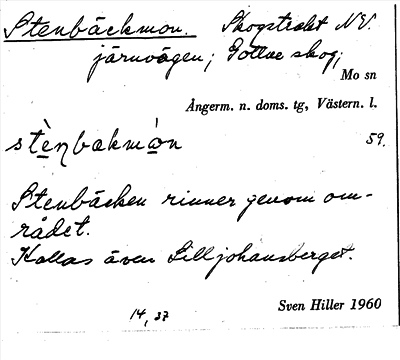 Stenbäckmon. Skogstrakt NV.
järnvägen; Gottne skog;
Mo sn
Ångerm. n. doms. tg, Västern. l.
stènbakmón 59.
Stenbäcken rinner genom om-
rådet.
Kallas även Lilljohansberget.
14, 37
Sven Hiller 1960